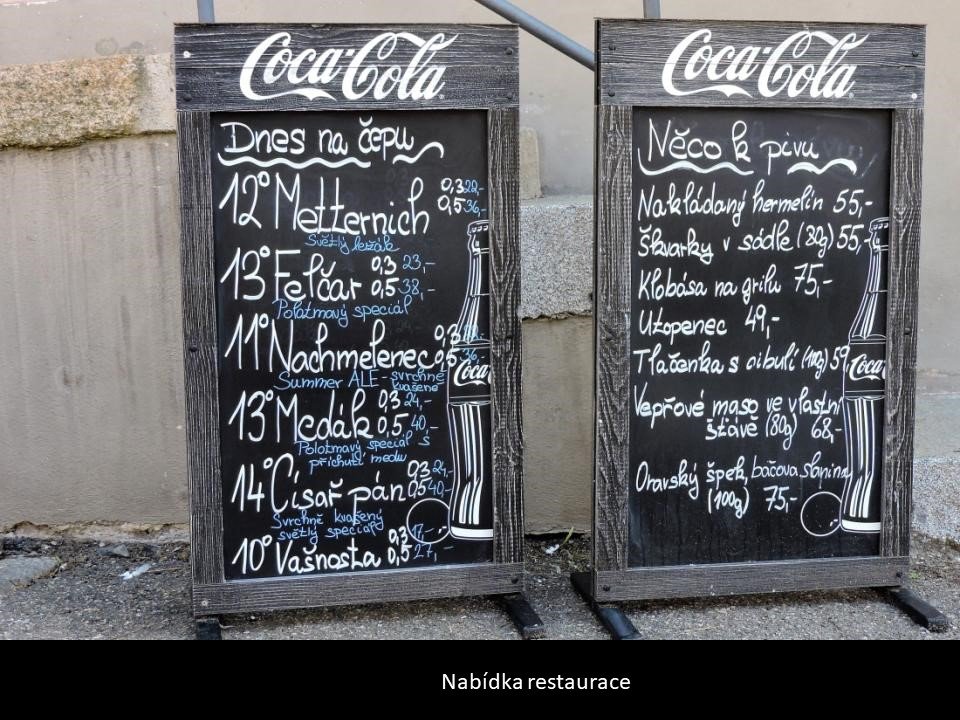 Coca-Cola
Dnes na čepu
12° Metternich 0,3 22,-
0,5 36,-
Světlý ležák
13° Felčar 0,3 23,-
0,5 38,-
Polotmavý speciál
11° Nachmelenec 0,3
0,5 36,-
Summer ALE - svrchně
kvašené
13° Medák 0,3 24,-
0,5 40,-
Polotmavý speciál s
příchutí medu
14° Císař pán 0,3 24,-
0,5 40,-
Svrchně kvašený
světlý speciál
10° Vašnosta 0,3 17,-
0,5 27,-
Coca
Coca-Cola
Něco k pivu
Nakládaný hermelín 55,-
Škvarky v sádle (80g) 55,-
Klobása na grilu 75,-
Utopenec 49,-
Tlačenka s cibulí (100g) 59
Vepřové maso ve vlastní
šťávě (80g) 68,-
Oravský špek, bačova slanina
(100g) 75,-
Coca
Nabídka restaurace